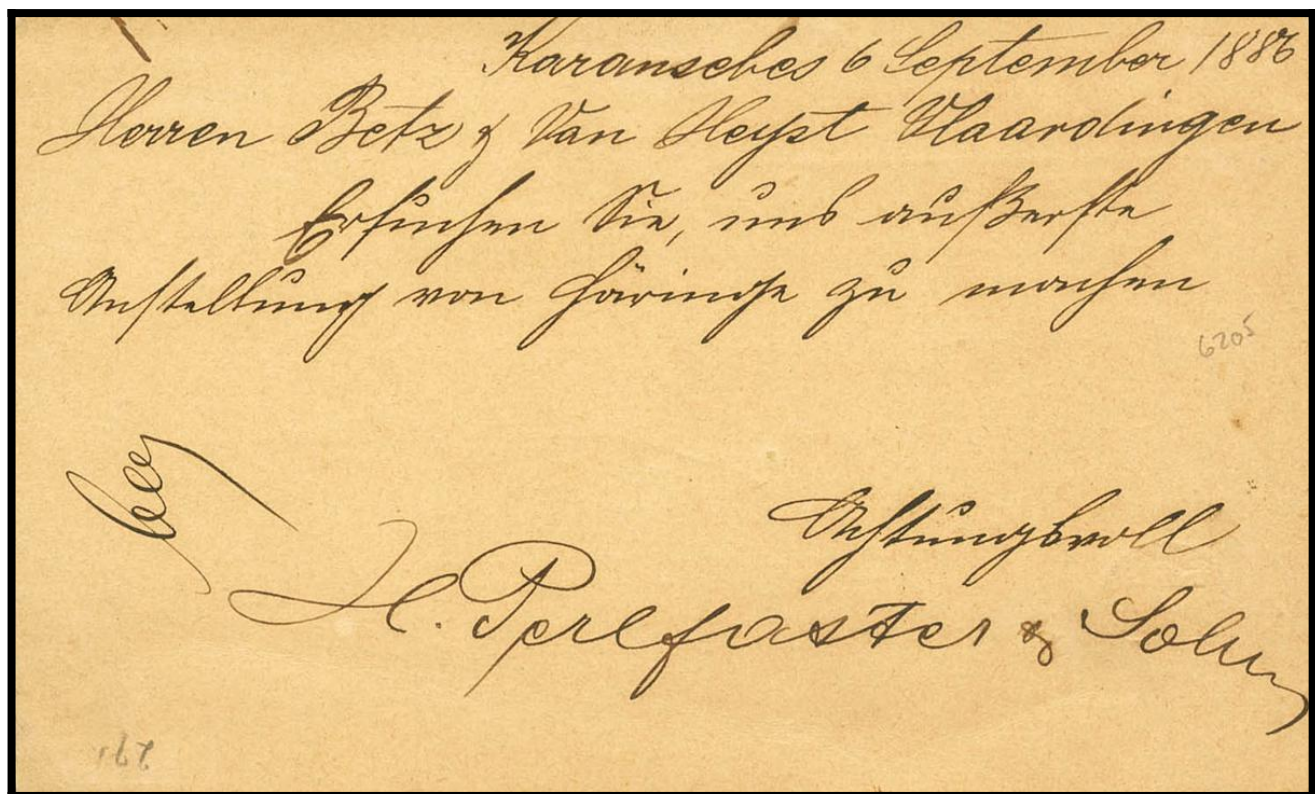 Karansebes 6 September 1886
Herren Betz & Van Heyst Vlaardingen
Ersuchen Sie, uns außerste
Anstellung von Häringe zu machen
6205
Achtungsvoll
H. Perlfaster & Sohn